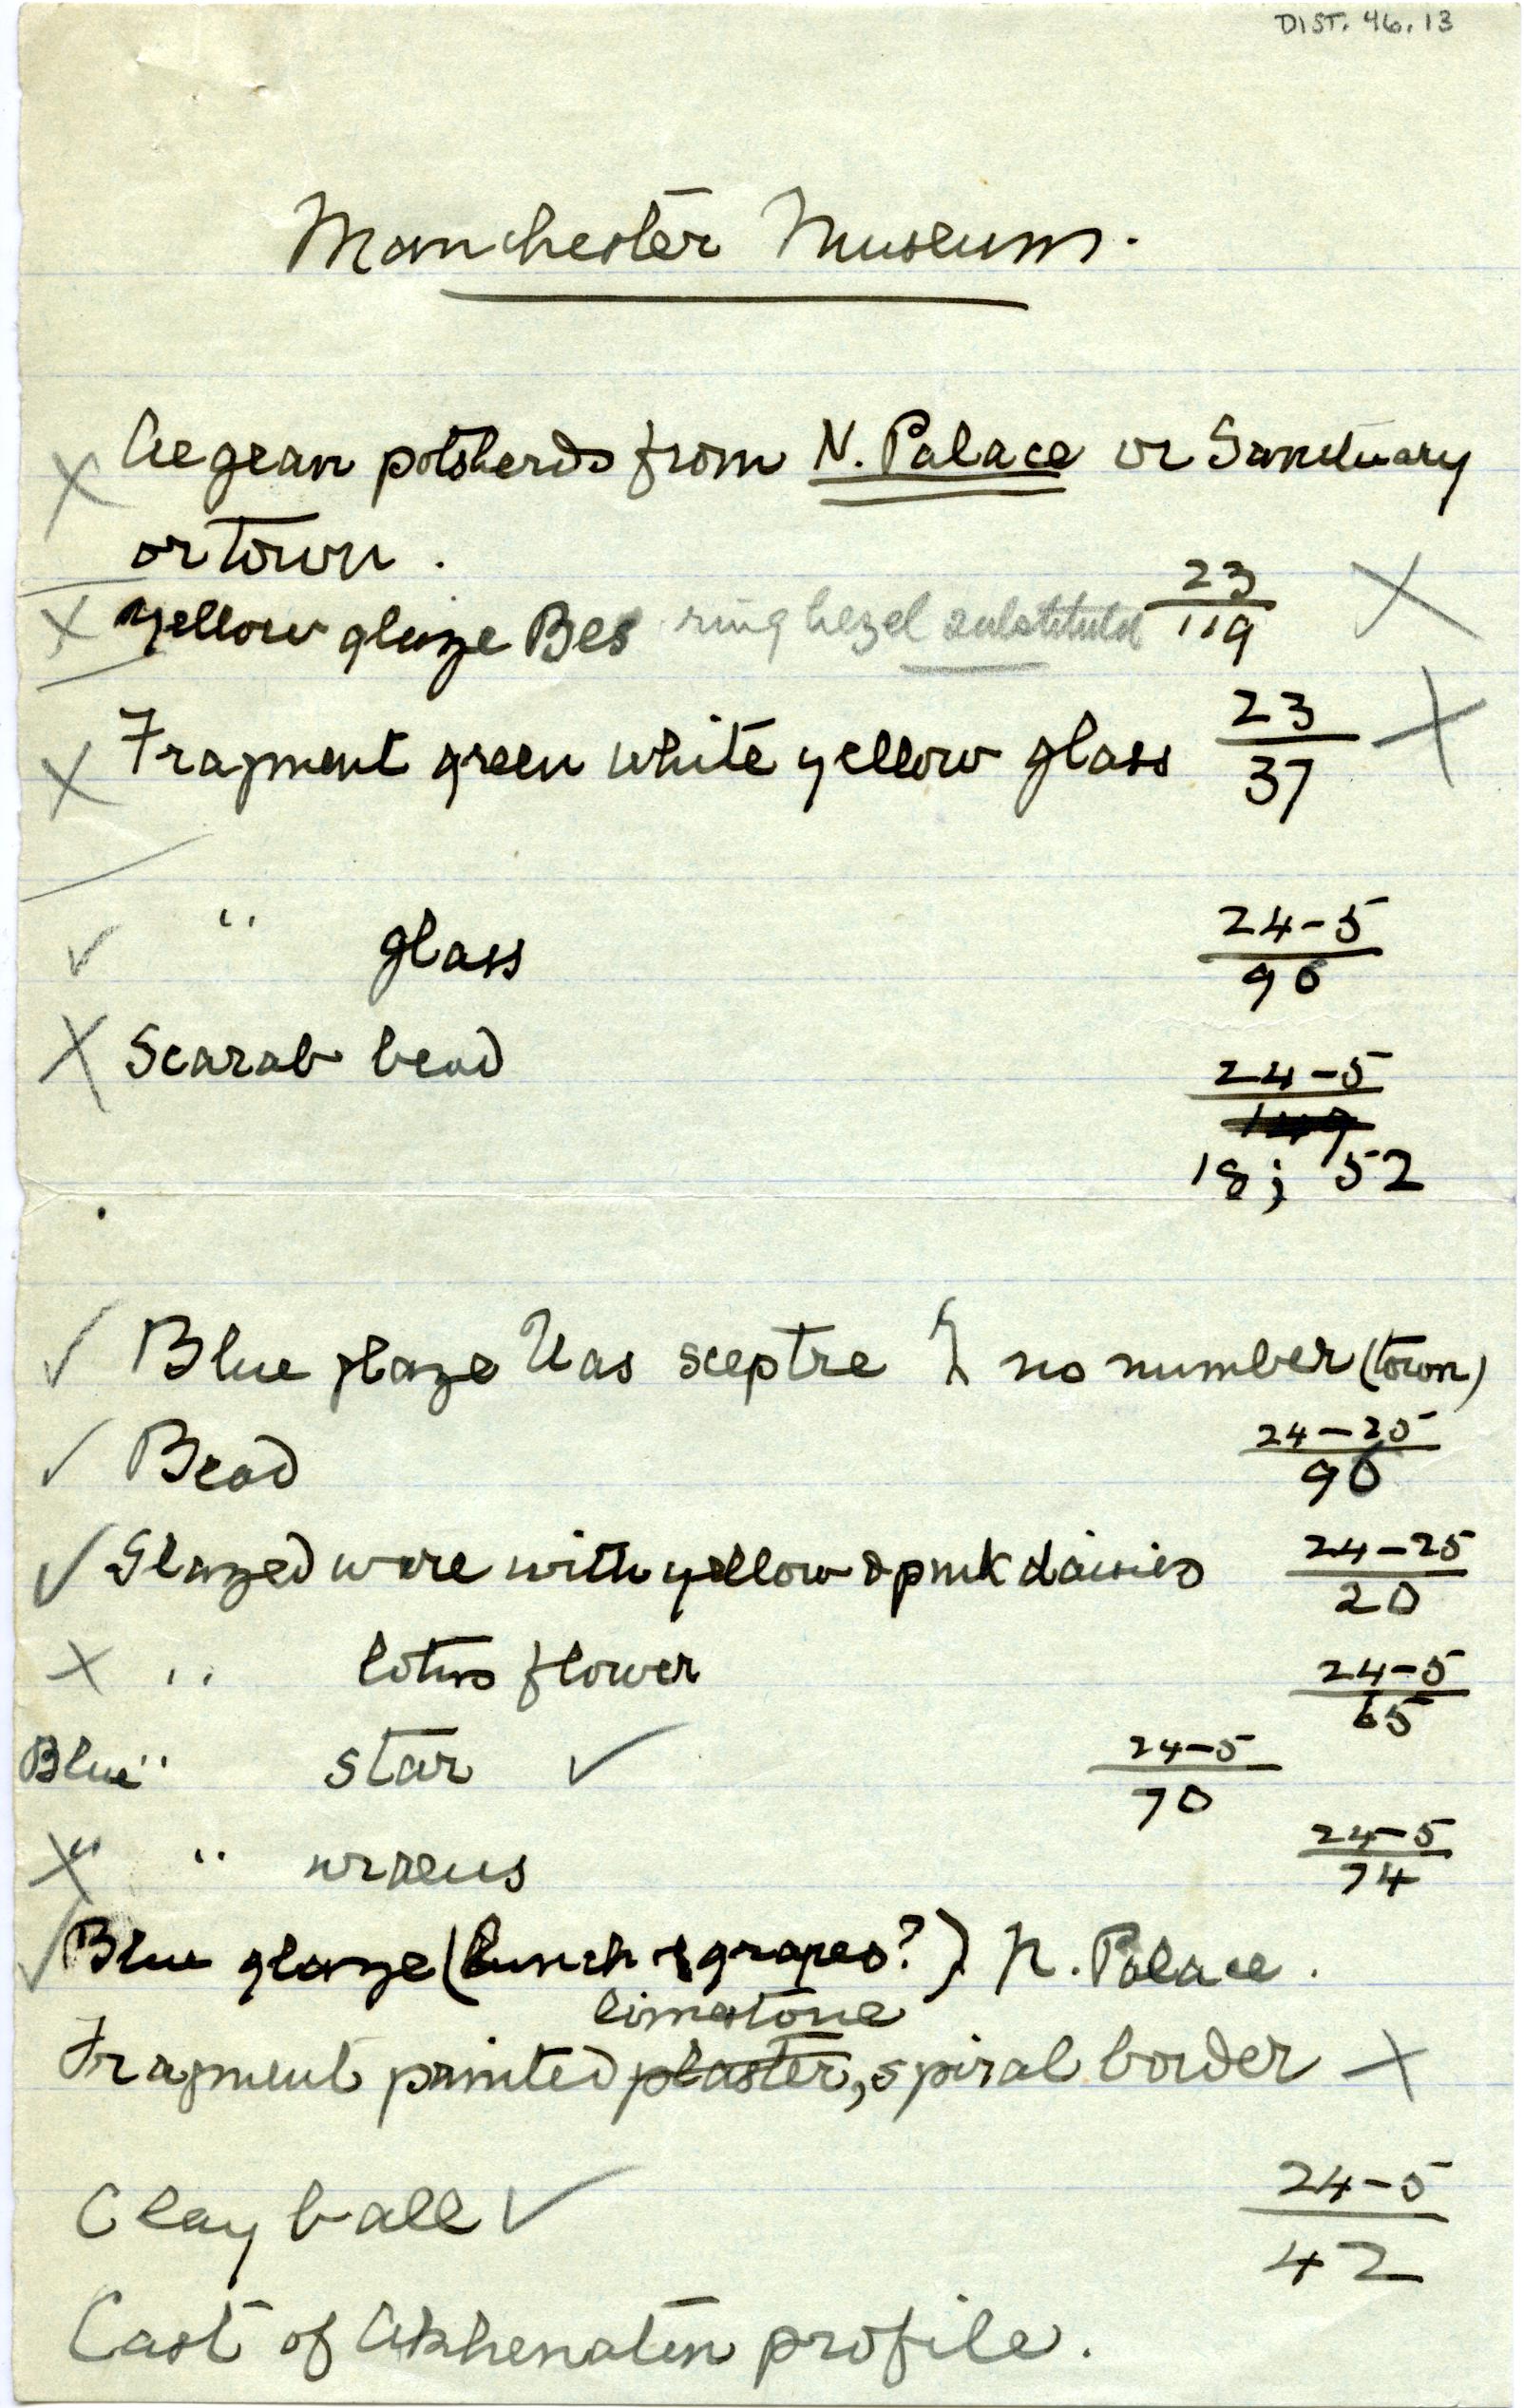 DIST. 46.13
Manchester Museum.
X Aegean potsherds from N. Palace or Sanctuary
or town.
X Yellow glaze Bes ring bezel substituted 23/119 X
X Fragment green white yellow glass 23/37 X
✓ " glass 24-5/96
X Scarab bead 24-5/
18; 52
✓ Blue glaze Uas sceptre } no number (town)
✓ Bead 24-25/96
✓ Glazed ware with yellow & pink daisies 24-25/20
X " lotus flower 24-5/65
Blue " star ✓ 24-5/70
X " " uraeus 24-5/74
✓ Blue glaze (bunch of grapes?) N. Palace.
limestone
Fragment painted plaster, spiral border X
Clay ball ✓ 24-5/42
Cast of Akhenaten profile.